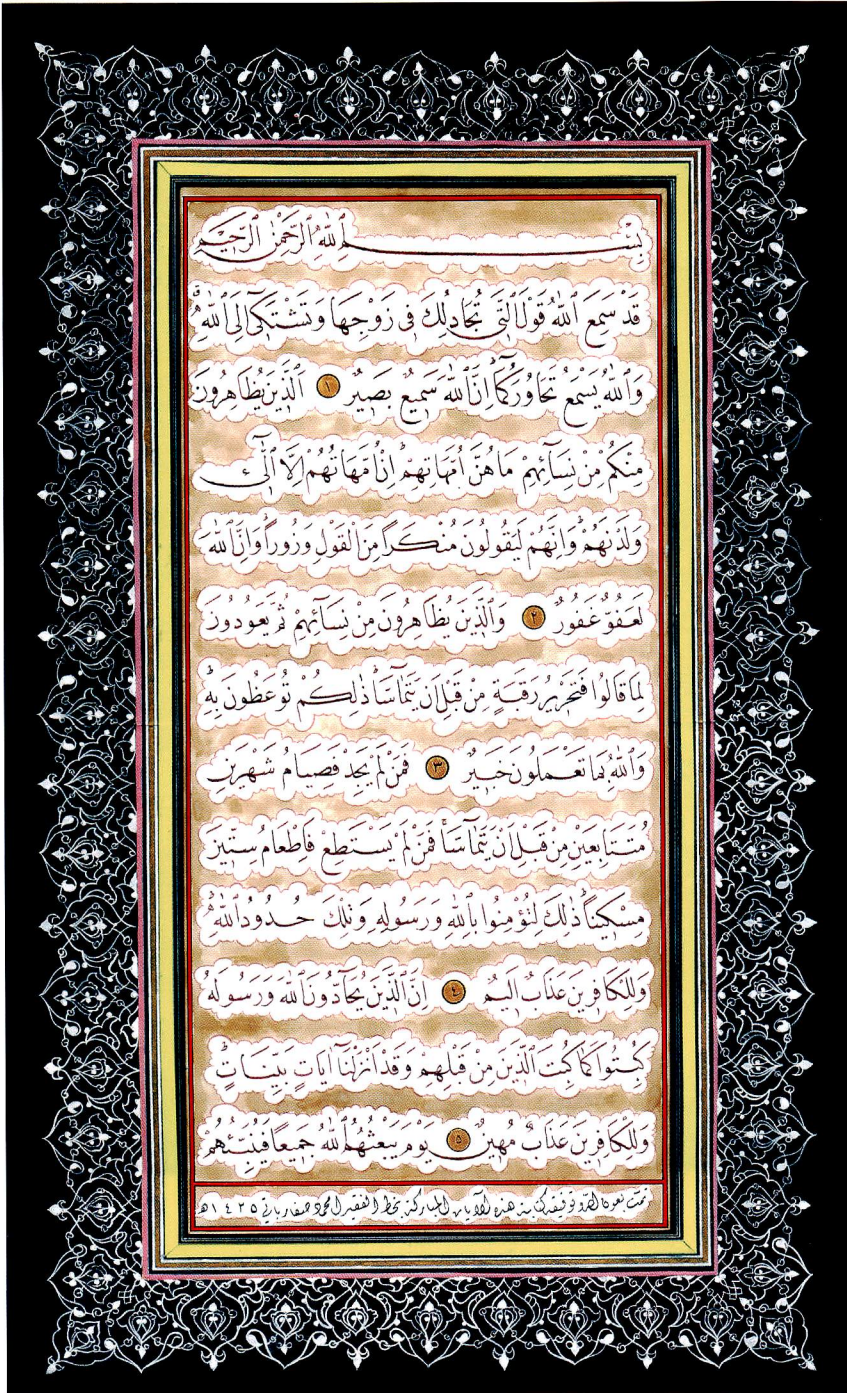 بِسْمِ ٱللهِ ٱلرَّحْمٰنِ ٱلرَّحِيمِ
قَدْ سَمِعَ ٱللهُ قَوْلَ ٱلَّتِى تُجَادِلُكَ فِى زَوْجِهَا وَتَشْتَكِىٓ اِلَى ٱللهِ
وَٱللهُ يَسْمَعُ تَحَاوُرَكُمَآ اِنَّ ٱللهَ سَمِيعٌ بَصِيرٌ ١ اَلَّذِينَ يُظَاهِرُونَ
مِنْكُمْ مِنْ نِسَآئِهِمْ مَا هُنَّ اُمَّهَاتِهِمْ اِنْ اُمَّهَاتُهُمْ اِلَّا ٱلّٰٓئِ
وَلَدْنَهُمْ وَاِنَّهُمْ لَيَقُولُونَ مُنْكَرًا مِنَ ٱلْقَوْلِ وَزُورًا وَاِنَّ ٱللهَ
لَعَفُوٌّ غَفُورٌ ٢ وَٱلَّذِينَ يُظَاهِرُونَ مِنْ نِسَآئِهِمْ ثُمَّ يَعُودُونَ
لِمَا قَالُوا فَتَحْرِيرُ رَقَبَةٍ مِنْ قَبْلِ اَنْ يَتَمَآسَّا ذٰلِكُمْ تُوعَظُونَ بِهِ
وَٱللهُ بِمَا تَعْمَلُونَ خَبِيرٌ ٣ فَمَنْ لَمْ يَجِدْ فَصِيَامُ شَهْرَيْنِ
مُتَتَابِعَيْنِ مِنْ قَبْلِ اَنْ يَتَمَآسَّا فَمَنْ لَمْ يَسْتَطِعْ فَاِطْعَامُ سِتِّينَ
مِسْكِينًا ذٰلِكَ لِتُؤْمِنُوا بِٱللهِ وَرَسُولِهِ وَتِلْكَ حُدُودُ ٱللهِ
وَلِلْكَافِرِينَ عَذَابٌ اَلِيمٌ ٤ اِنَّ ٱلَّذِينَ يُحَآدُّونَ ٱللهَ وَرَسُولَهُ
كُبِتُوا كَمَا كُبِتَ ٱلَّذِينَ مِنْ قَبْلِهِمْ وَقَدْ اَنْزَلْنَآ اٰيَاتٍ بَيِّنَاتٍ
وَلِلْكَافِرِينَ عَذَابٌ مُهِينٌ ٥ يَوْمَ يَبْعَثُهُمُ ٱللهُ جَمِيعًا فَيُنَبِّئُهُمْ
تمت بعون الله وتوفيقه كتابة هذه الآيات المباركة بخط الفقير محمد صفارباتي ١٤٢٥هـ